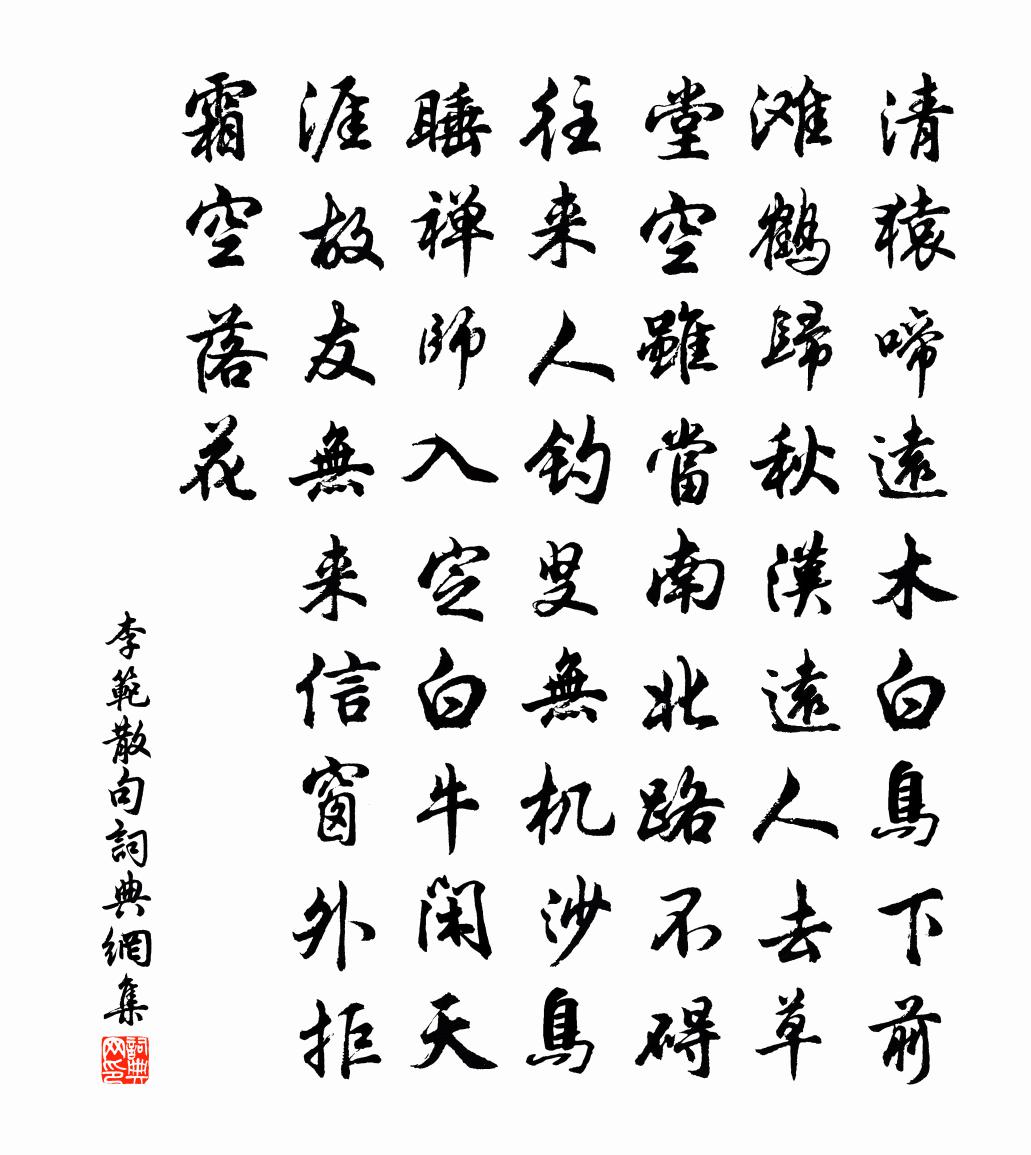 清猿啼遠木白鳥下前
滩鶴歸秋漠遠人去草
堂空雖當南北路不碍
往来人钓叟無机沙鳥
睡禅师入定白牛闲天
涯故友無来信窗外拒
霜空落花
李範散句詞典網集
詞典网印